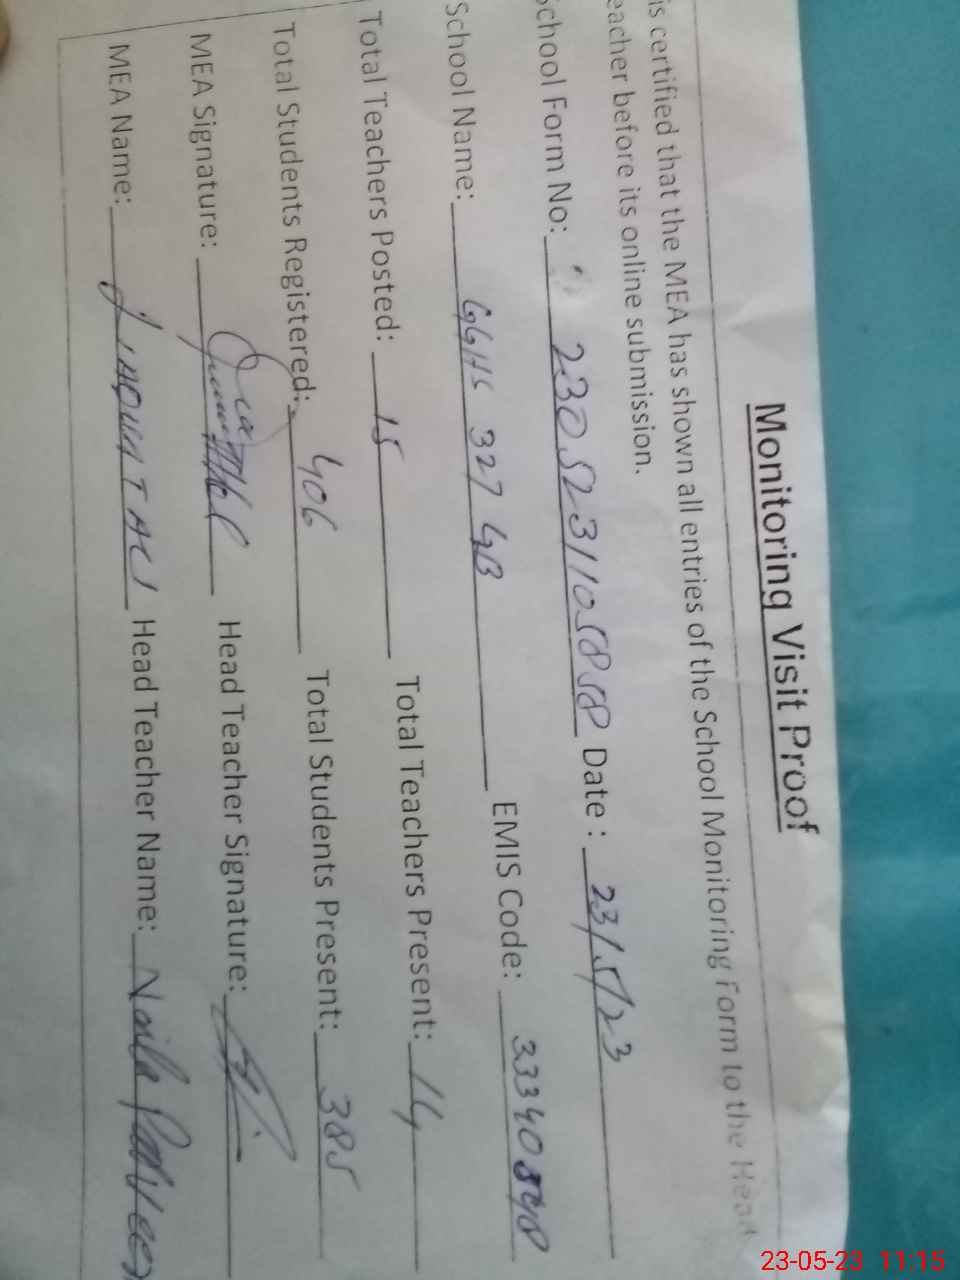 Monitoring Visit Proof
is certified that the MEA has shown all entries of the School Monitoring Form to the Head
eacher before its online submission.
School Form No: 2305231105858 Date : 23/5/23
School Name: GGHS 327 GB EMIS Code: 33340
Total Teachers Posted: 15 Total Teachers Present: 14
Total Students Registered: 406 Total Students Present: 385
MEA Signature: Head Teacher Signature:
MEA Name: Head Teacher Name: Naila Parveen
23-05-23 11:15